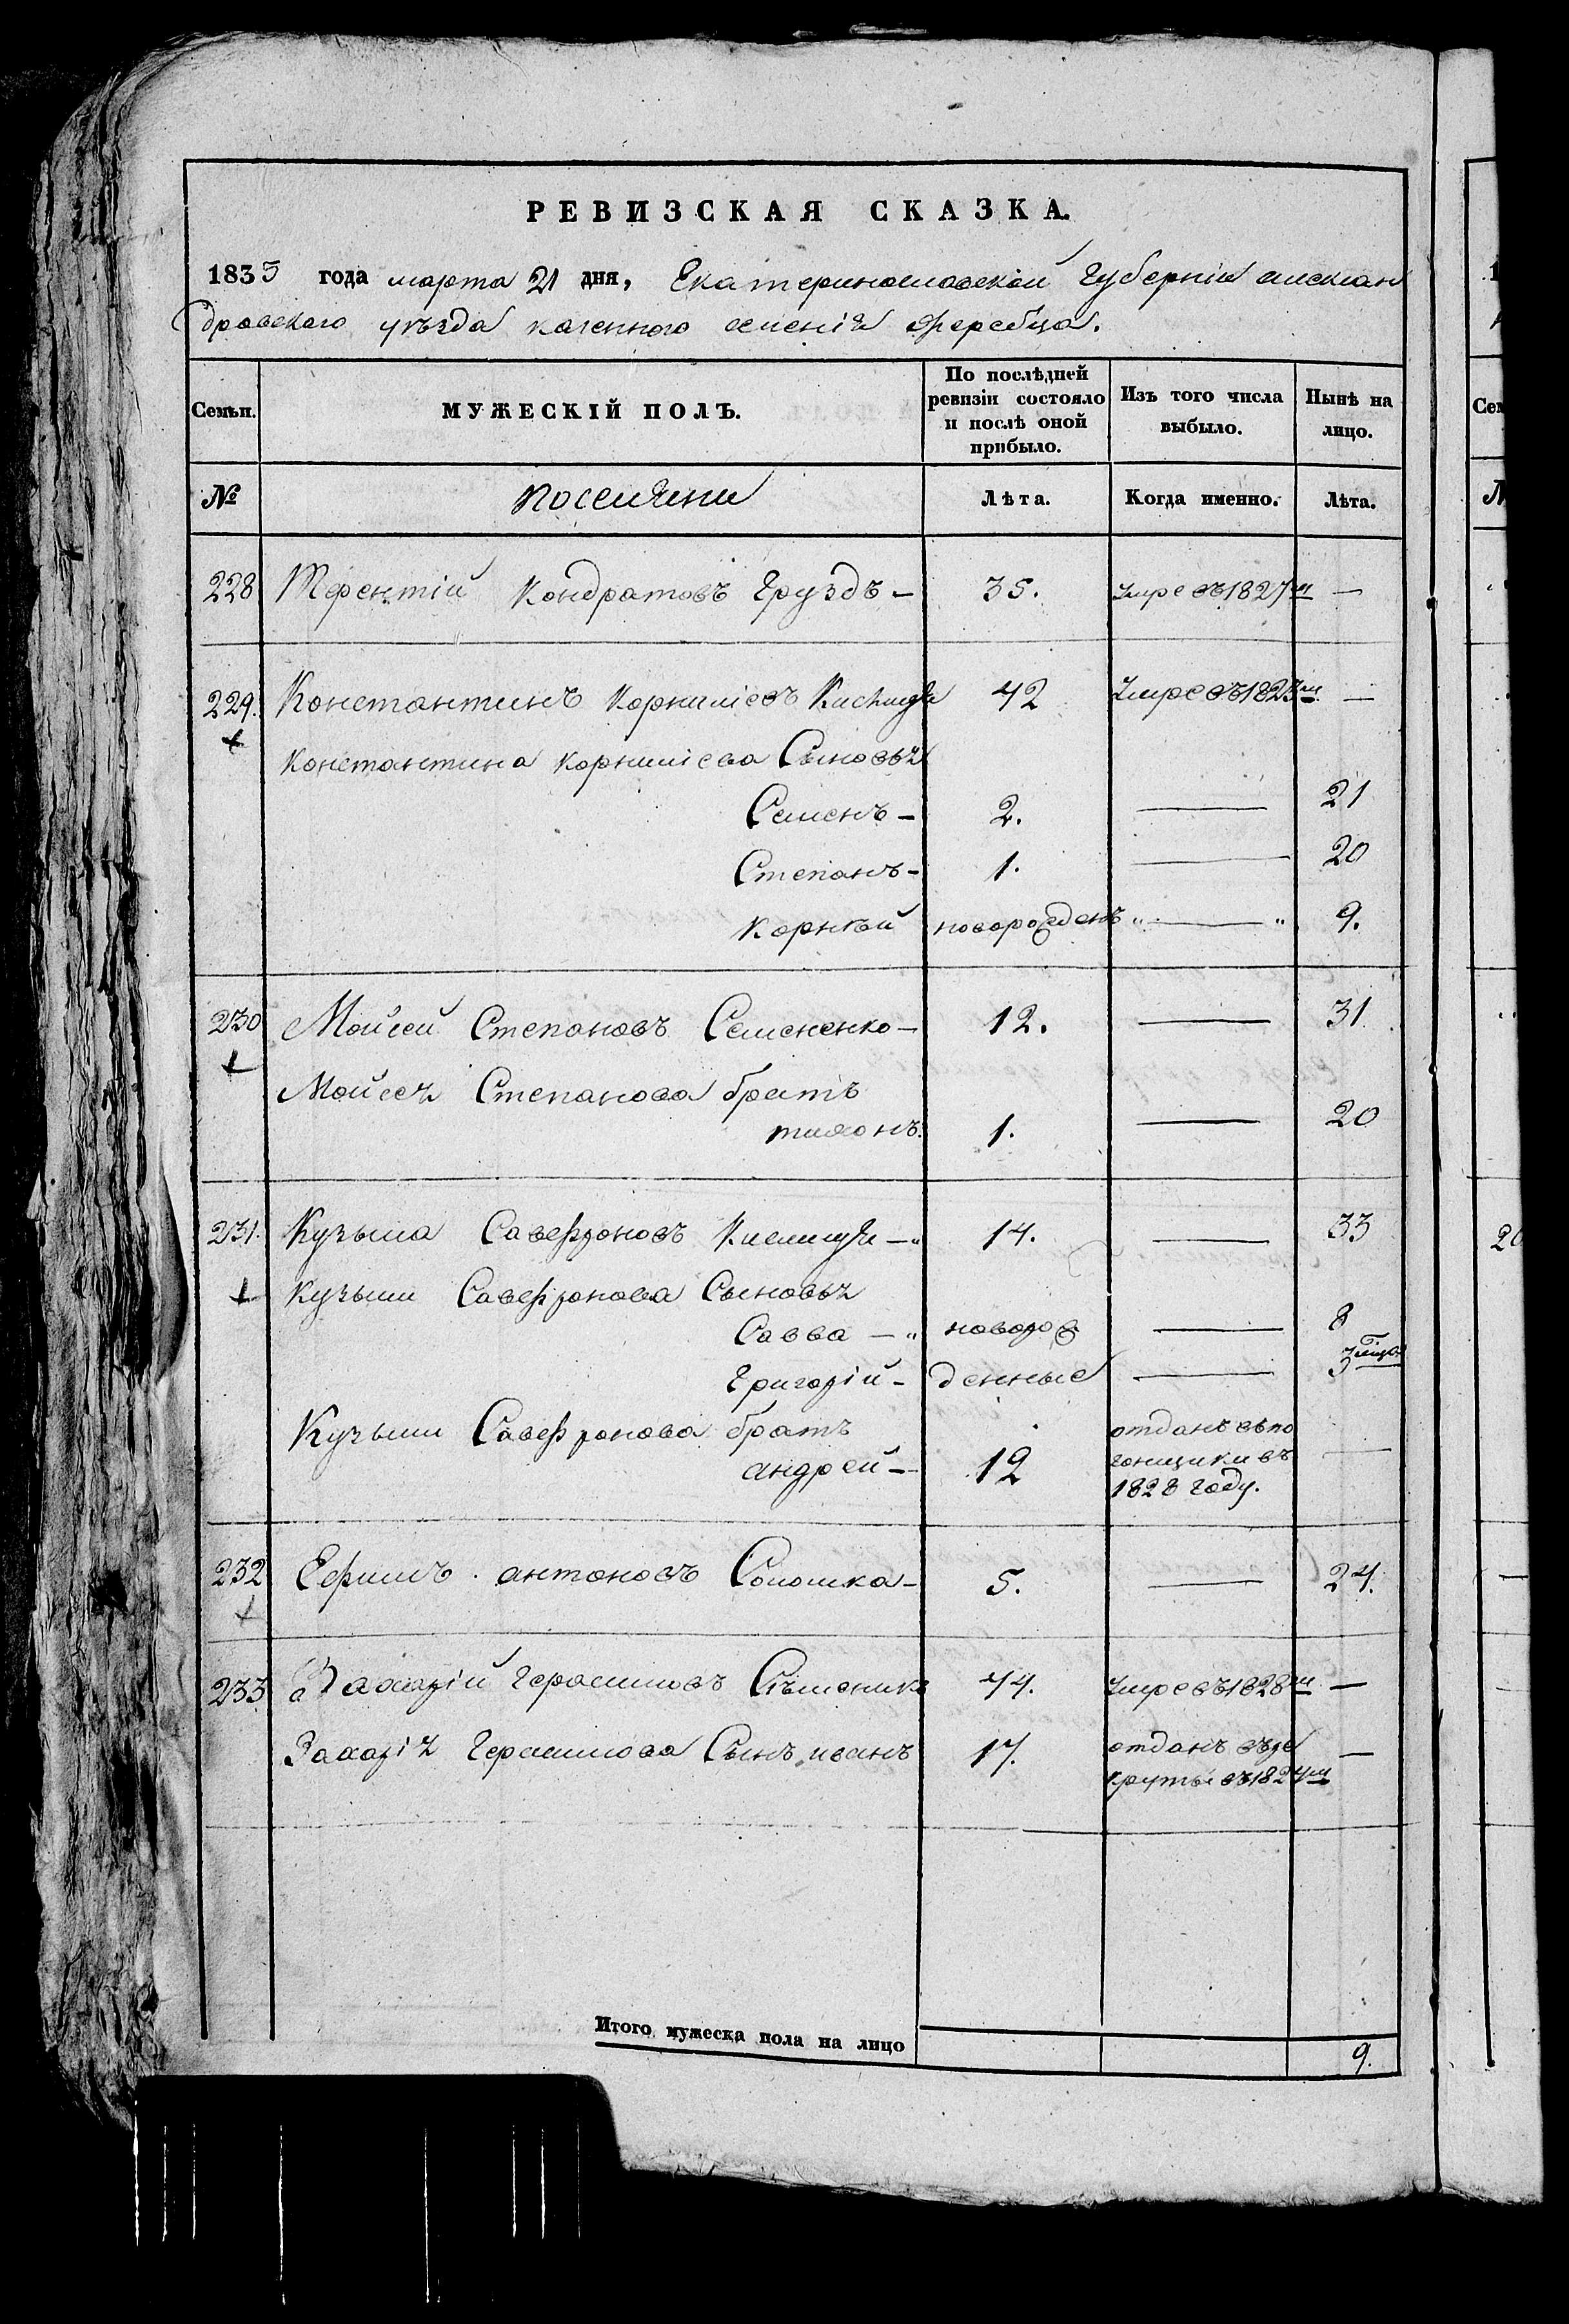 РЕВИЗСКАЯ СКАЗКА.
1835 года марта 21 дня, Екатеринославской Губерніи алексан
дровскаго уѣзда казенного селенія Жеребца.
Семьи. МУЖЕСКІЙ ПОЛЪ. По послѣдней ревизіи состояло и послѣ оной прибыло. Изъ того числа выбыло. Нынѣ на лицо.
№ поселяни Лѣта. Когда именно. Лѣта.
228 Терентій Кондратовъ Груздъ — 35. умре въ 1827м —
229. Константинъ Корниліевъ 42 Умре въ 1823м —
Константина Корниліева Сыновья
Семенъ — 2. — 21
Степанъ — 1. — 20
Корнѣй новорожденъ „ — „ 9.
230 Мойсей Степановъ Семененко — 12. — 31.
Мойсея Степанова братъ
тихонъ. 1. — 20
231. Кузьма Савефроновъ — 14. — 33
Кузьми Савефронова Сыновья
Савва — „ новорож — 8
Григорій — денные — 3 мѣца
Кузьми Савефронова братъ отданъ въ по
андрей — 12 гонщики въ —
1828 году.
232 Ефимъ антоновъ Солошка — 5. — 24.
233 Захарій Герасимовъ 44. умре въ 1828м —
Захарія Герасимова Сынъ иванъ 17. отданъ въ ре —
круты въ 1824м
Итого мужеска пола на лицо 9.